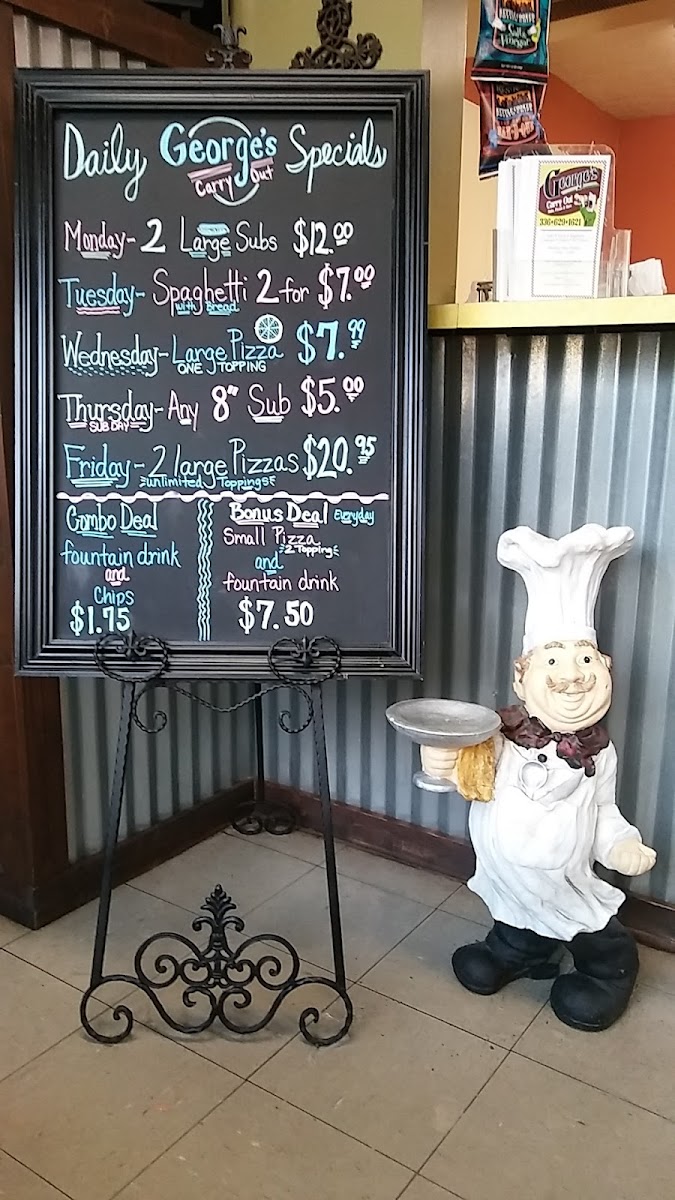 Daily George's Specials
Carry Out
Monday- 2 Large Subs $12.00
Tuesday- Spaghetti 2 for $7.00
with Bread
Wednesday- Large Pizza $7.99
ONE TOPPING
Thursday- Any 8" Sub $5.00
SUB DAY
Friday- 2 large Pizzas $20.95
unlimited Toppings
Combo Deal
fountain drink
and
Chips
$1.75
Bonus Deal Everyday
Small Pizza
2 Topping
and
fountain drink
$7.50
Salt &
Vinegar
BAR-B-QUE
George's
Carry Out
336•629•1621